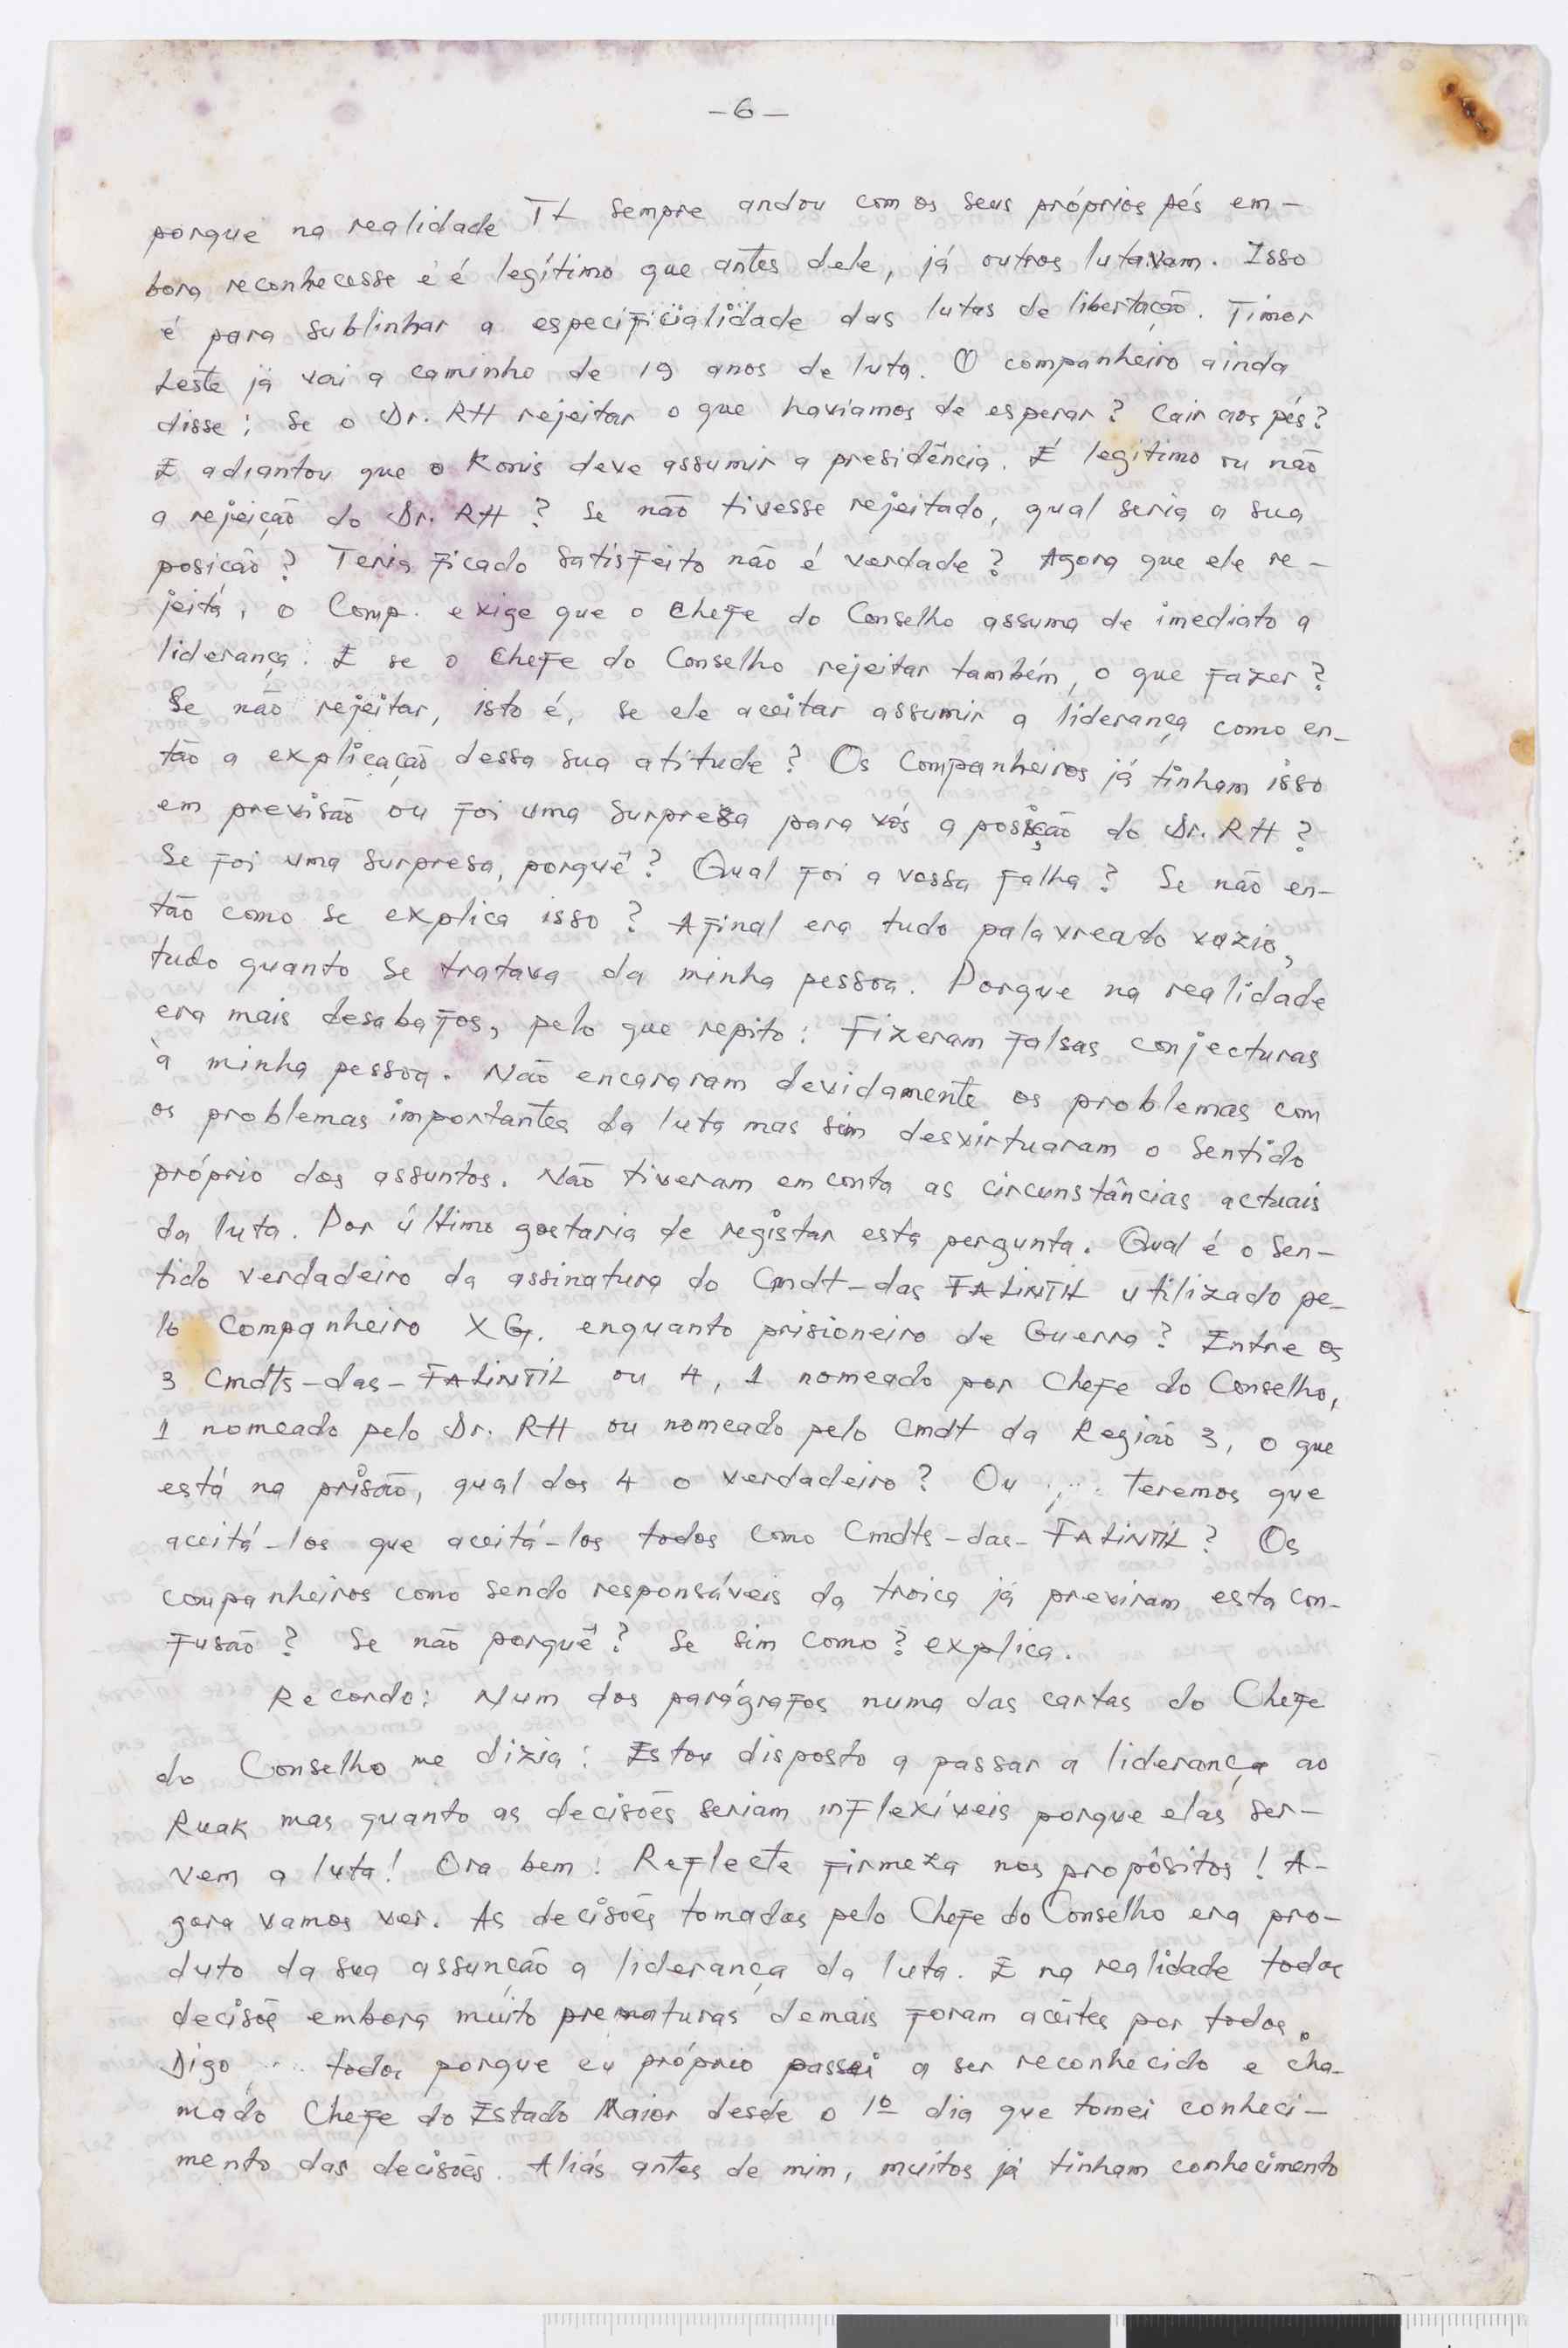 -6-
porque na realidade TL sempre andou com os seus próprios pés em-
bora reconhecesse e é legítimo que antes dele, já outros lutavam. Isso
é para sublinhar a especificialidade das lutas de libertação. Timor
Leste já vai a caminho de 19 anos de luta. O companheiro ainda
disse: Se o Dr. RH rejeitar o que havíamos de esperar? Cair aos pés?
E adiantou que o Konis deve assumir a presidência. É legítimo ou não
a rejeição do Dr. RH? Se não tivesse rejeitado, qual seria a sua
posição? Teria ficado satisfeito não é verdade? Agora que ele re-
jeita, o Comp. exige que o Chefe do Conselho assuma de imediato a
liderança. E se o Chefe do Conselho rejeitar também, o que fazer?
Se não rejeitar, isto é, se ele aceitar assumir a liderança como en-
tão a explicação dessa sua atitude? Os Companheiros já tinham isso
em previsão ou foi uma surpresa para vós a posição do Dr. RH?
Se foi uma surpresa, porquê? Qual foi a vossa falha? Se não en-
tão como se explica isso? Afinal era tudo palavreado vazio,
tudo quanto se tratava da minha pessoa. Porque na realidade
era mais desabafos, pelo que repito: Fizeram falsas conjecturas
à minha pessoa. Não encararam devidamente os problemas com
os problemas importantes da luta mas sim desvirtuaram o sentido
próprio dos assuntos. Não tiveram em conta as circunstâncias actuais
da luta. Por último gostaria de registar esta pergunta. Qual é o sen-
tido verdadeiro da assinatura do Cmdt-das FALINTIL utilizado pe-
lo Companheiro XG. enquanto prisioneiro de Guerra? Entre os
3 Cmdts-das-FALINTIL ou 4, 1 nomeado por Chefe do Conselho,
1 nomeado pelo Dr. RH ou nomeado pelo Cmdt da Região 3, o que
está na prisão, qual dos 4 o verdadeiro? Ou ... teremos que
aceitá-los que aceitá-los todos como Cmdts-das-FALINTIL? Os
companheiros como sendo responsáveis da troica já previram esta con-
fusão? Se não porquê? Se sim como? explica.
Recordo: Num dos parágrafos numa das cartas do Chefe
do Conselho me dizia: Estou disposto a passar a liderança ao
Ruak mas quanto as decisões seriam inflexíveis porque elas ser-
vem a luta! Ora bem! Reflecte firmeza nos propósitos! A-
gora vamos ver. As decisões tomadas pelo Chefe do Conselho era pro-
duto da sua assunção a liderança da luta. E na realidade todas
decisõe embora muito prematuras demais foram aceites por todos.
Digo ... todos porque eu próprio passei a ser reconhecido e cha-
mado Chefe do Estado Maior desde o 1º dia que tomei conheci-
mento das decisões. Aliás antes de mim, muitos já tinham conhecimento